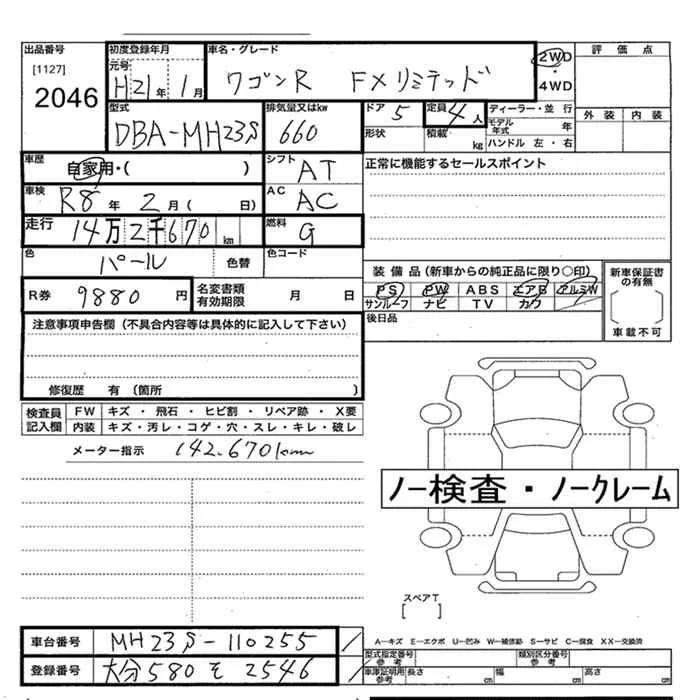 出品番号 初度登録年月 車名・グレード 2WD 評価点
[1127] 元号 ・
2046 H21年 1月 ワゴンR FXリミテッド 4WD
型式 排気量又はkw ドア 5 定員 4人 ディーラー・並行 外装 内装
DBA-MH23S 660 形状 積載 kg モデル年式 年
ハンドル 左・右
車歴 自家用・( ) シフト AT 正常に機能するセールスポイント
車検 R8年 2月 ( 日) AC AC
走行 14万2千670km 燃料 G
色 パール 色替 色コード
装備品(新車からの純正品に限り○印) 新車保証書の有無
R券 9880円 名変書類有効期限 月 日 PS PW ABS エアB アルミW
サンルーフ ナビ TV カワ 車載不可
注意事項申告欄(不具合内容等は具体的に記入して下さい) 後日品
修復歴 有 (箇所 )
検査員記入欄 FW キズ・飛石・ヒビ割・リペア跡・X要
内装 キズ・汚レ・コゲ・穴・スレ・キレ・破レ
メーター指示 142.670km
ノー検査・ノークレーム
スペアT
[ ]
A―キズ E―エクボ U―凹み W―補修跡 S―サビ C―腐食 XX―交換済
車台番号 MH23S-110255 型式指定番号 / 参考 類別区分番号 / 参考
登録番号 大分580そ2546 車庫証明用参考 長さ cm 幅 cm 高さ cm